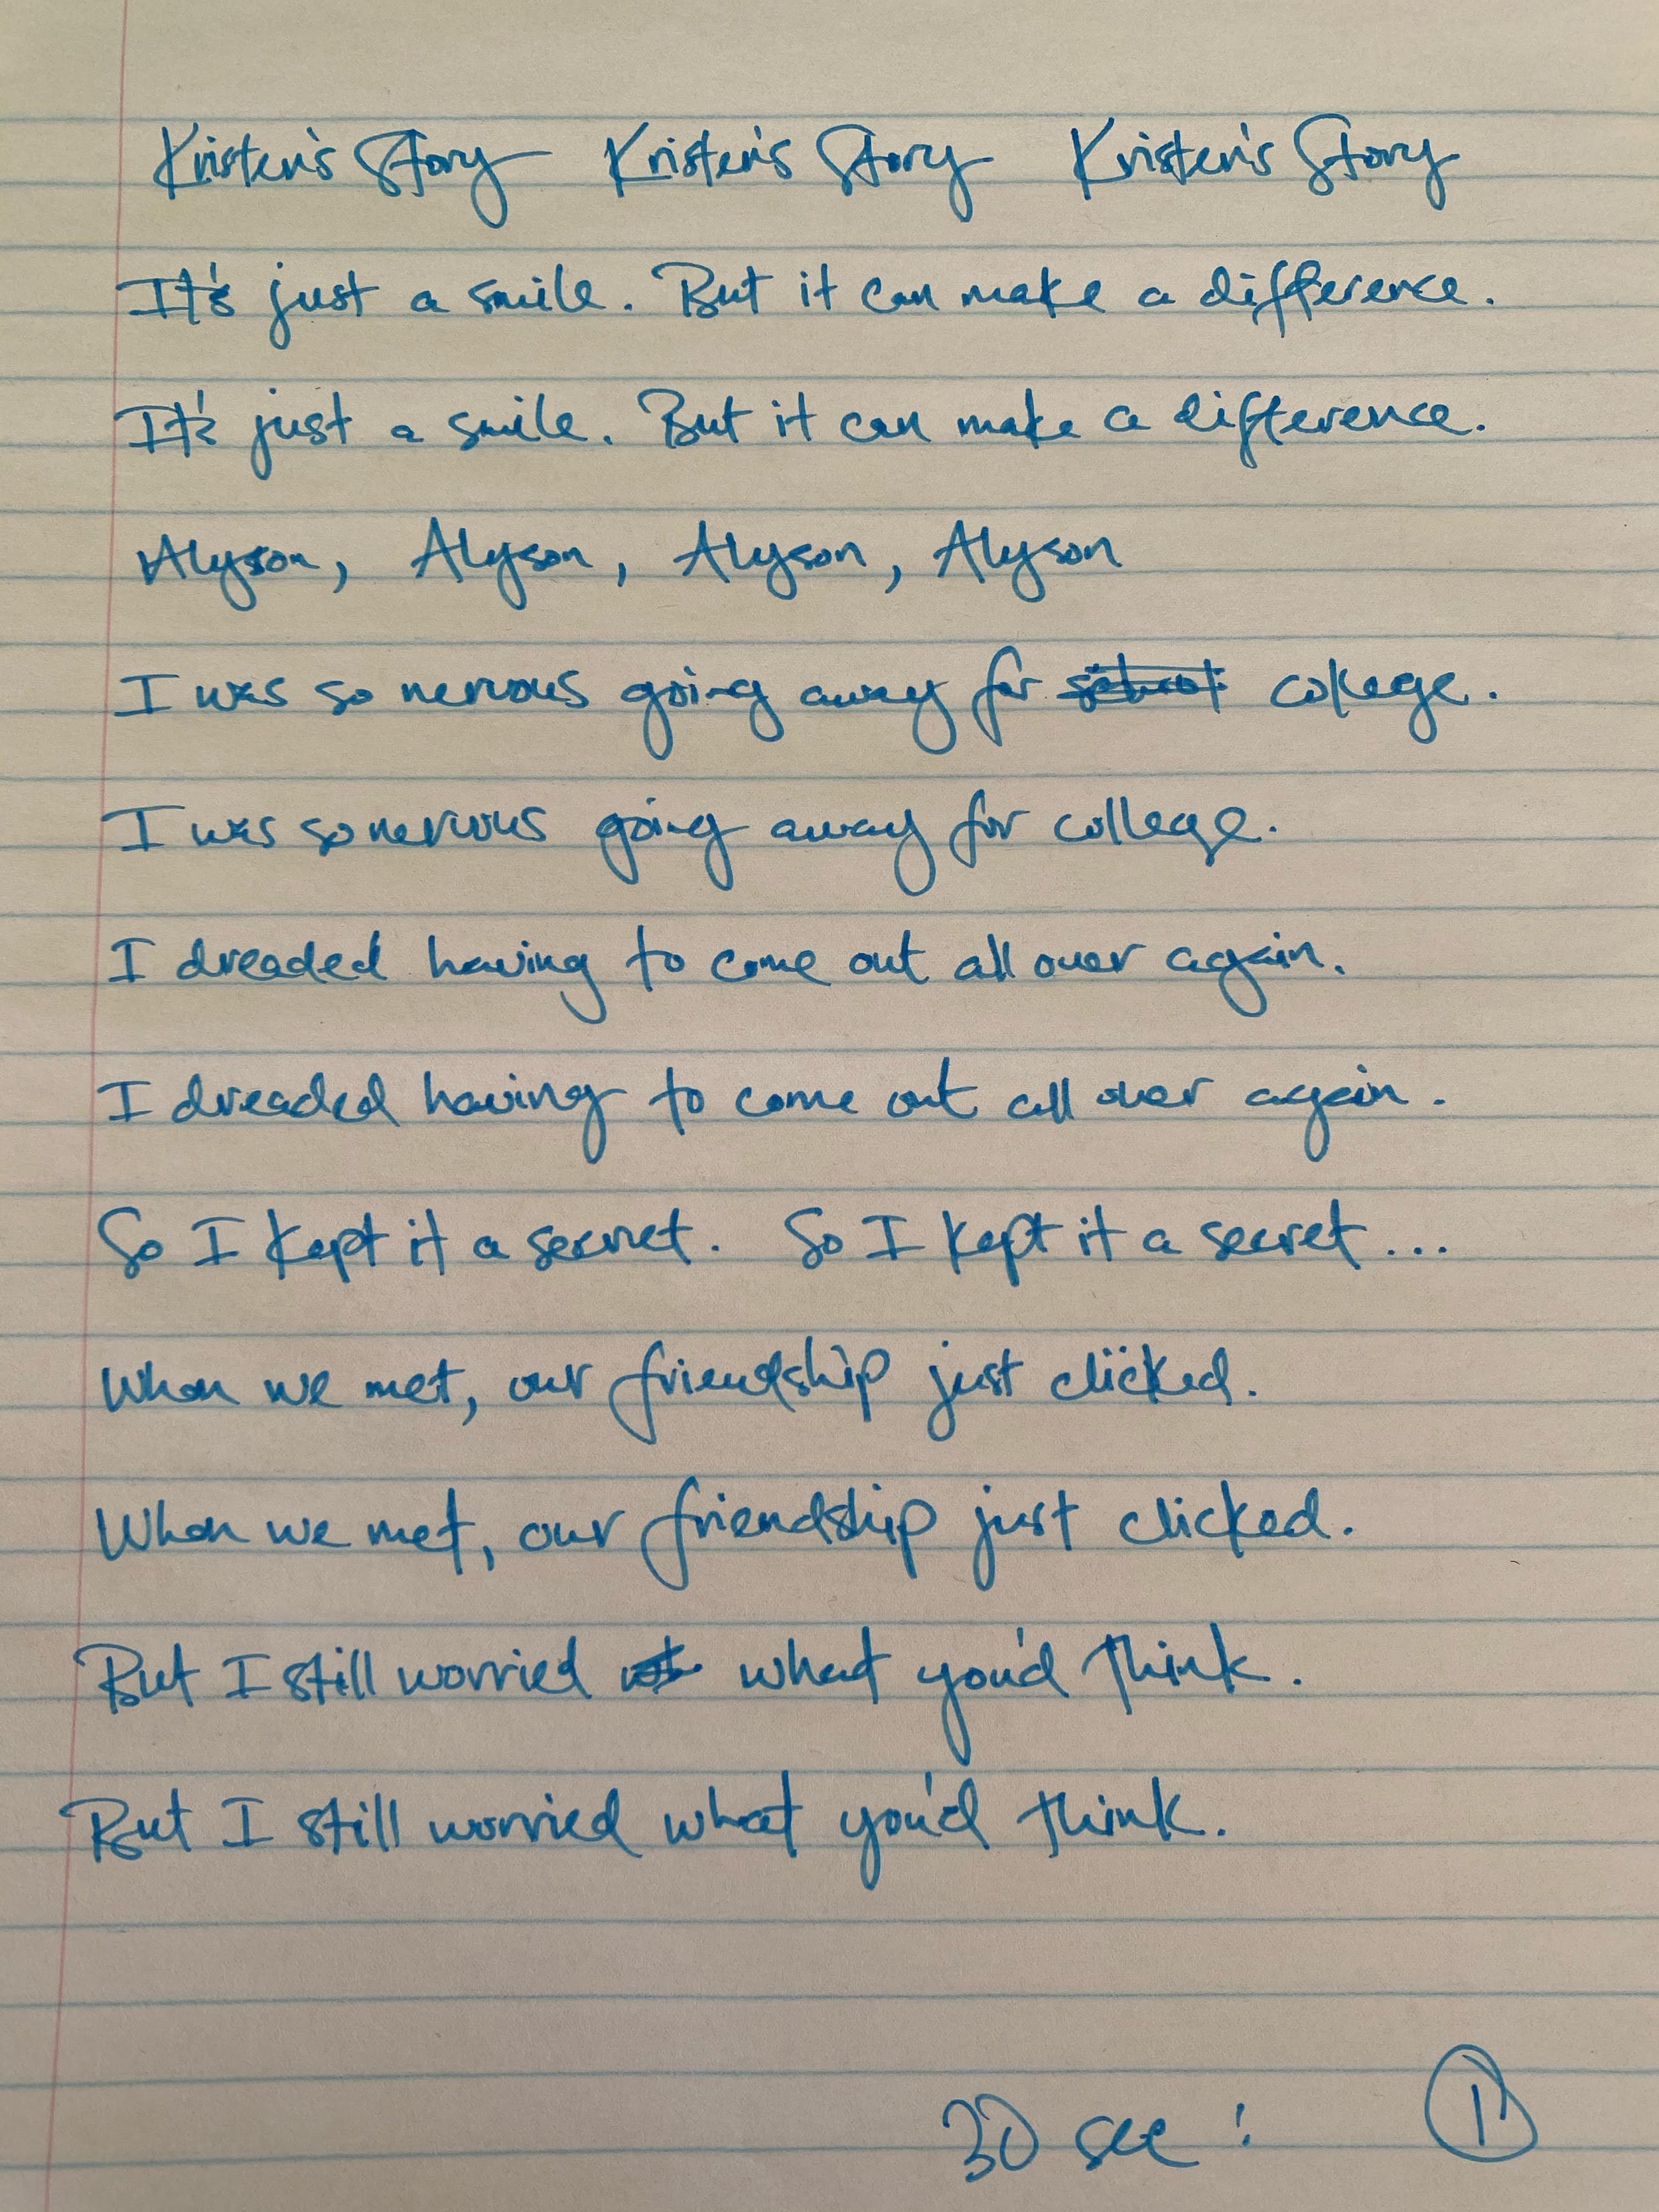 Kristen's Story Kristen's Story Kristen's Story
It's just a smile. But it can make a difference.
It's just a smile. But it can make a difference.
Alyson, Alyson, Alyson, Alyson
I was so nervous going away for college.
I was so nervous going away for college.
I dreaded having to come out all over again.
I dreaded having to come out all over again.
So I kept it a secret. So I kept it a secret...
When we met, our friendship just clicked.
When we met, our friendship just clicked.
But I still worried what you'd think.
But I still worried what you'd think.
30 sec: 1